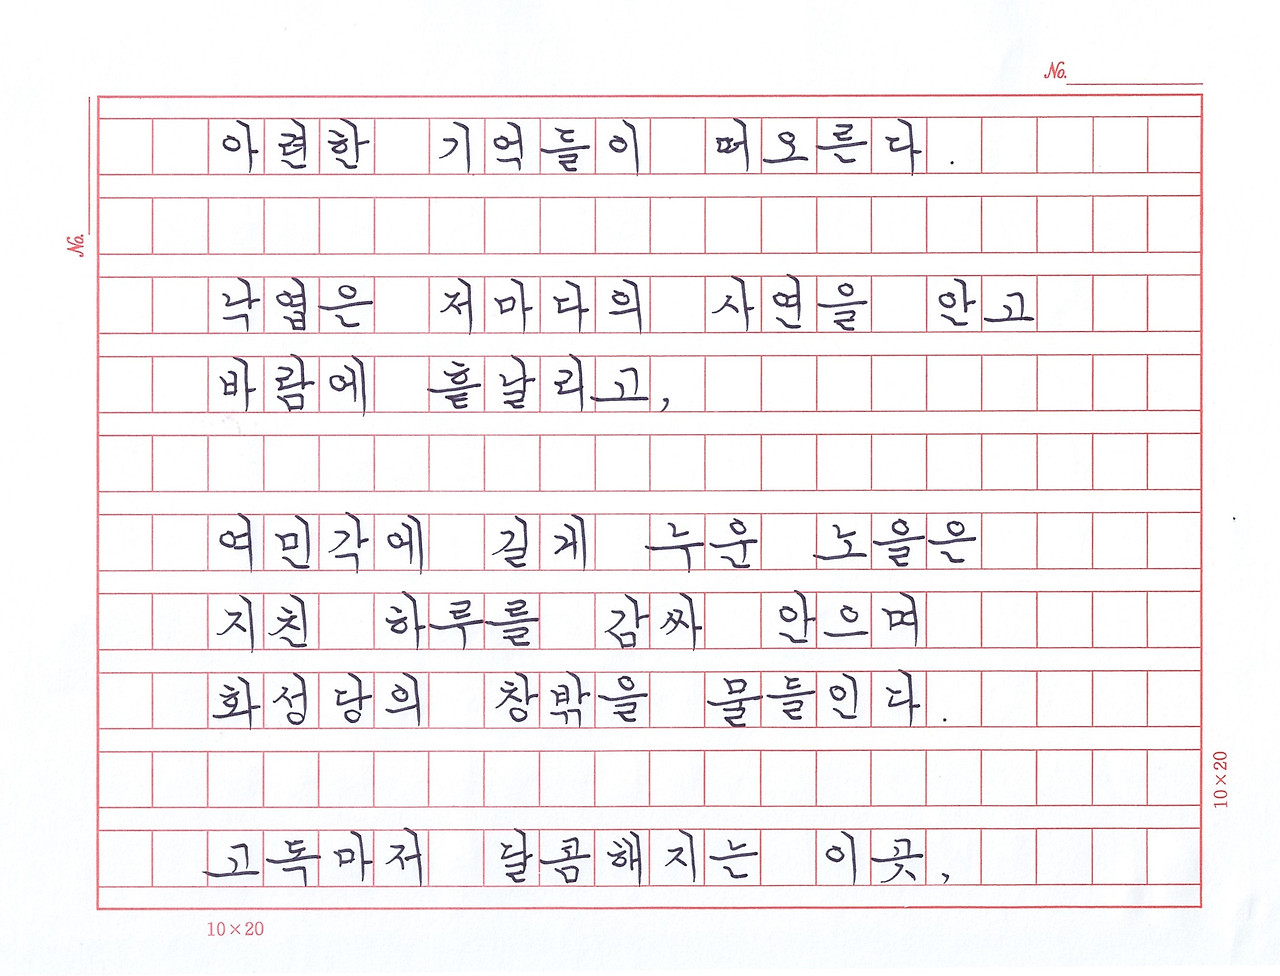 No.
아련한 기억들이 떠오른다.
No.
낙엽은 저마다의 사연을 안고
바람에 흩날리고,
여민각에 길게 누운 노을은
지친 하루를 감싸 안으며
화성당의 창밖을 물들인다.
10×20
고독마저 달콤해지는 이곳,
10×20